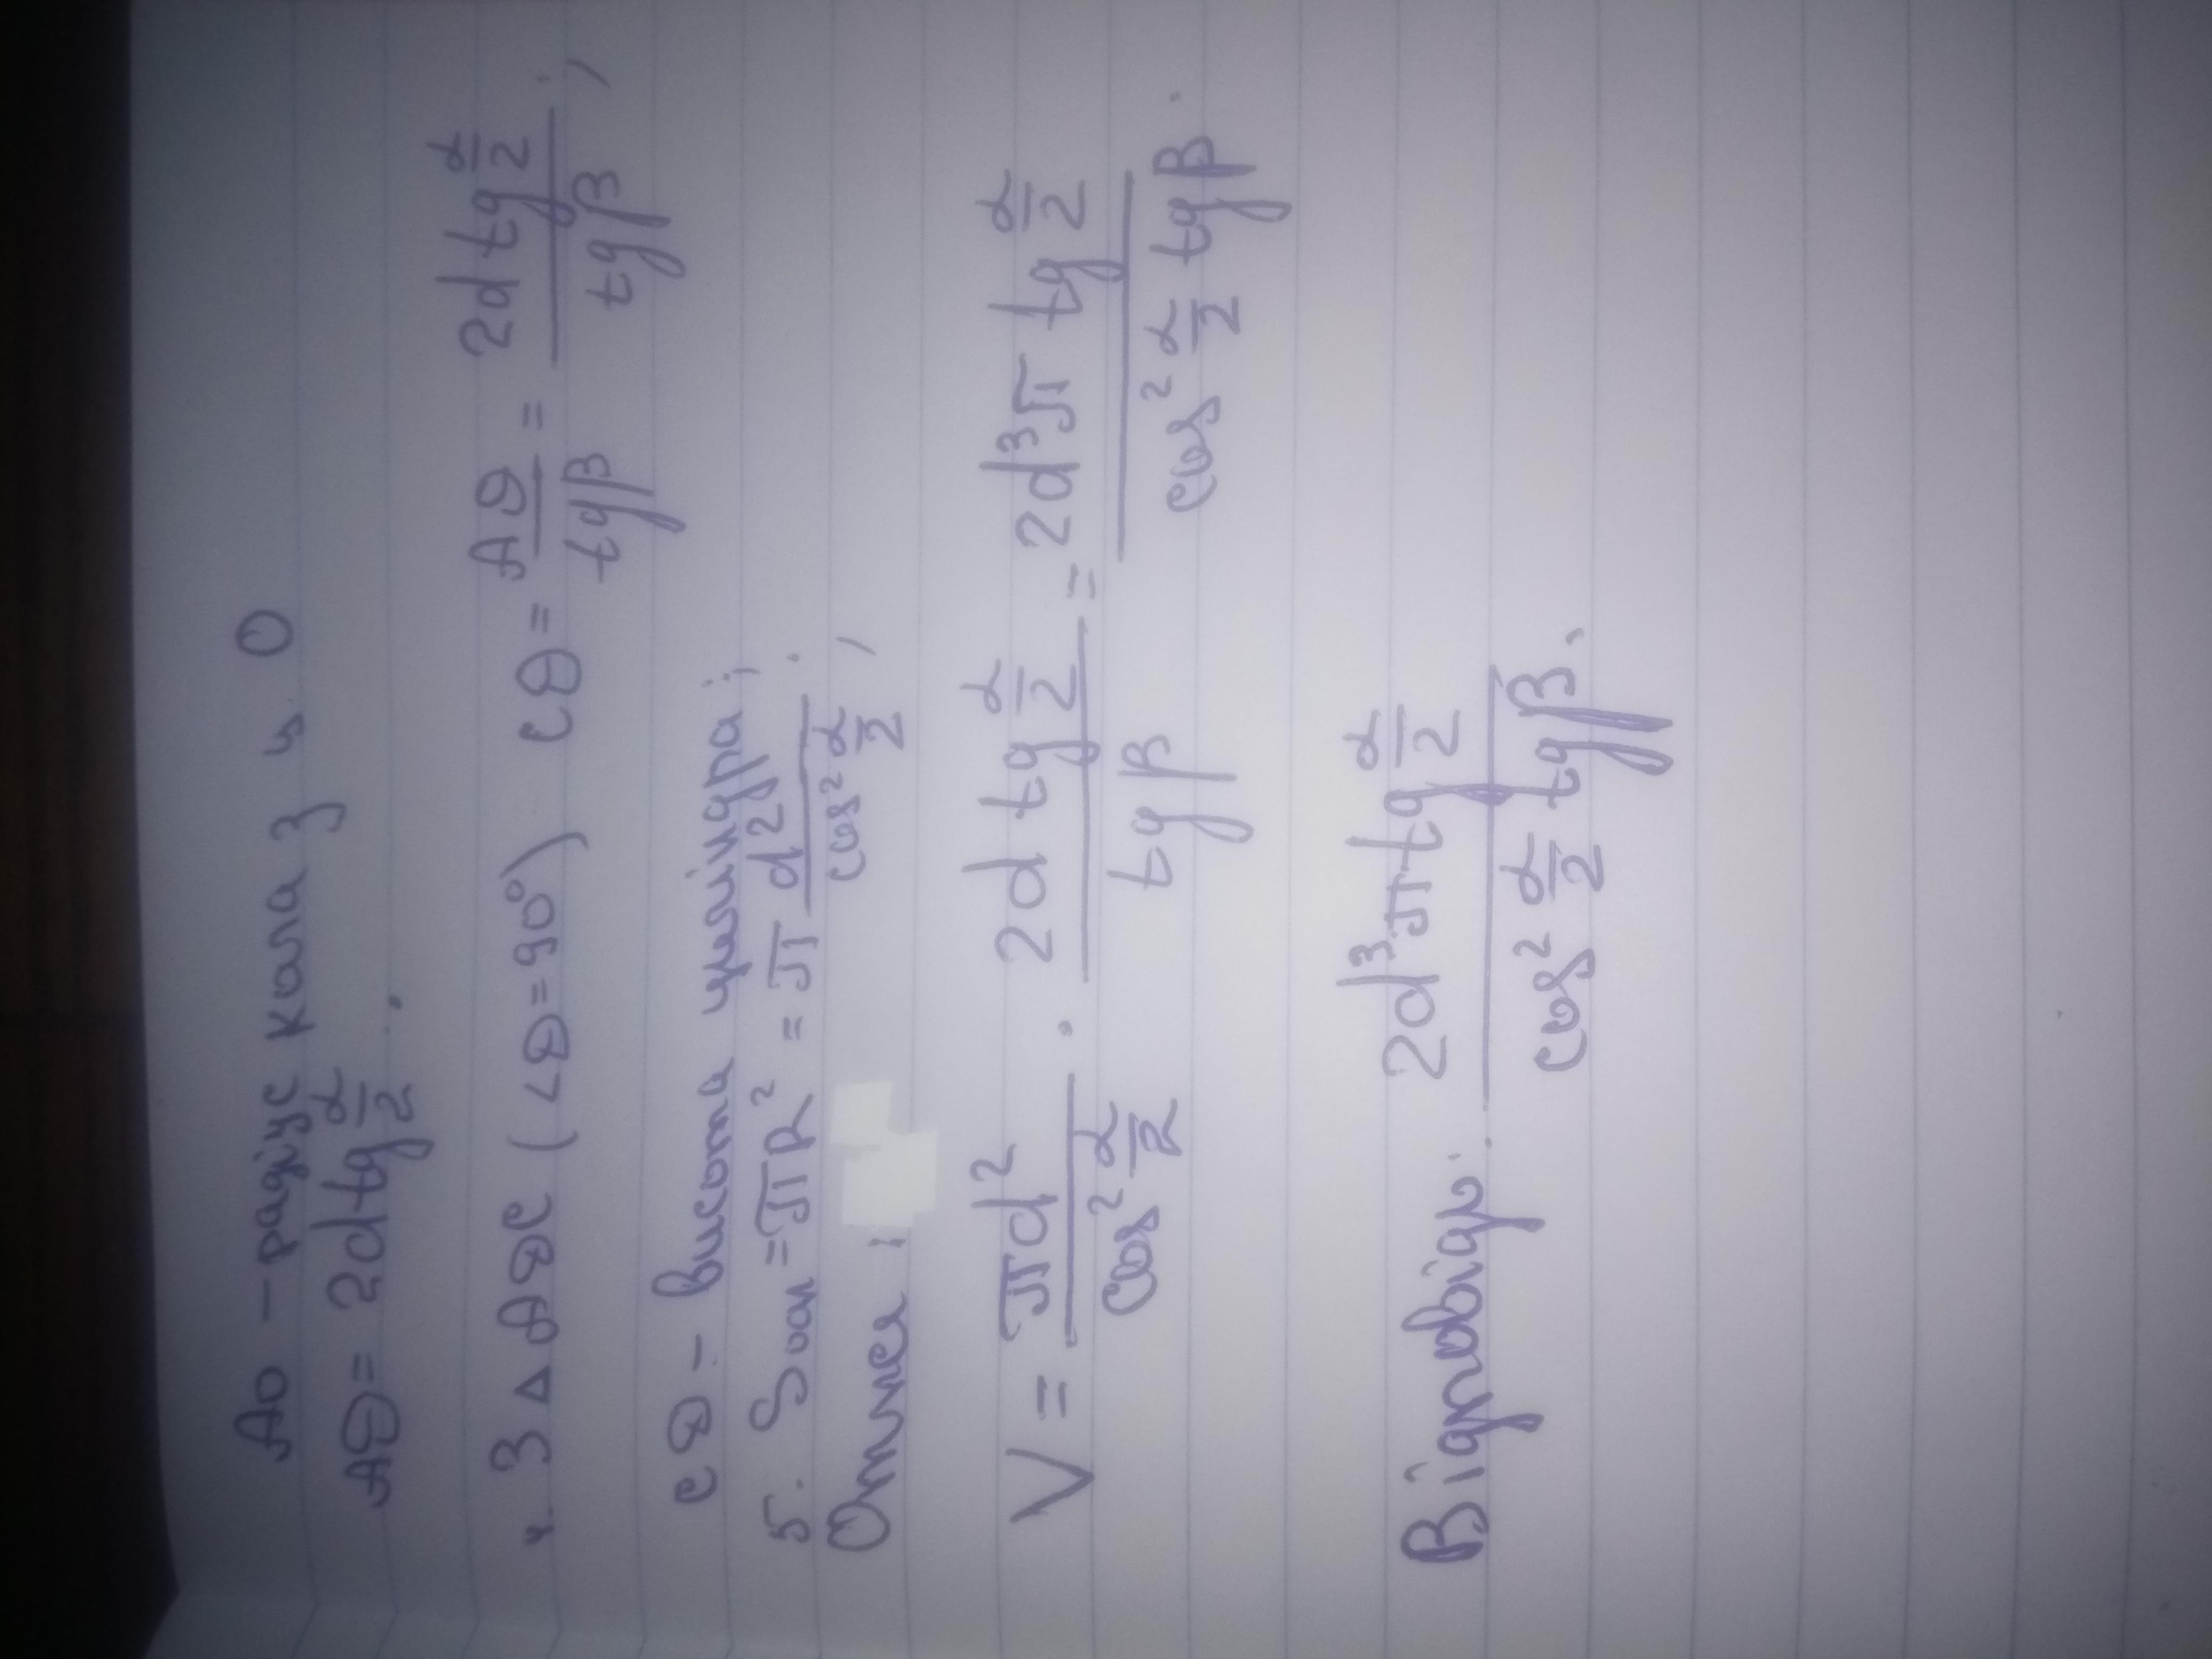 AO - радіус кола з ц. O
AB = 2d tg α/2.
4. З Δ ABC (∠B=90°) CB = AB/tgβ = 2d tg α/2 / tgβ;
CB - висота циліндра;
5. Sосн = πR² = π d²/cos² α/2;
Отже;
V = πd²/cos² α/2 · 2d tg α/2 / tgβ = 2d³π tg α/2 / cos² α/2 tgβ.
Відповідь: 2d³π tg α/2 / cos² α/2 tgβ.